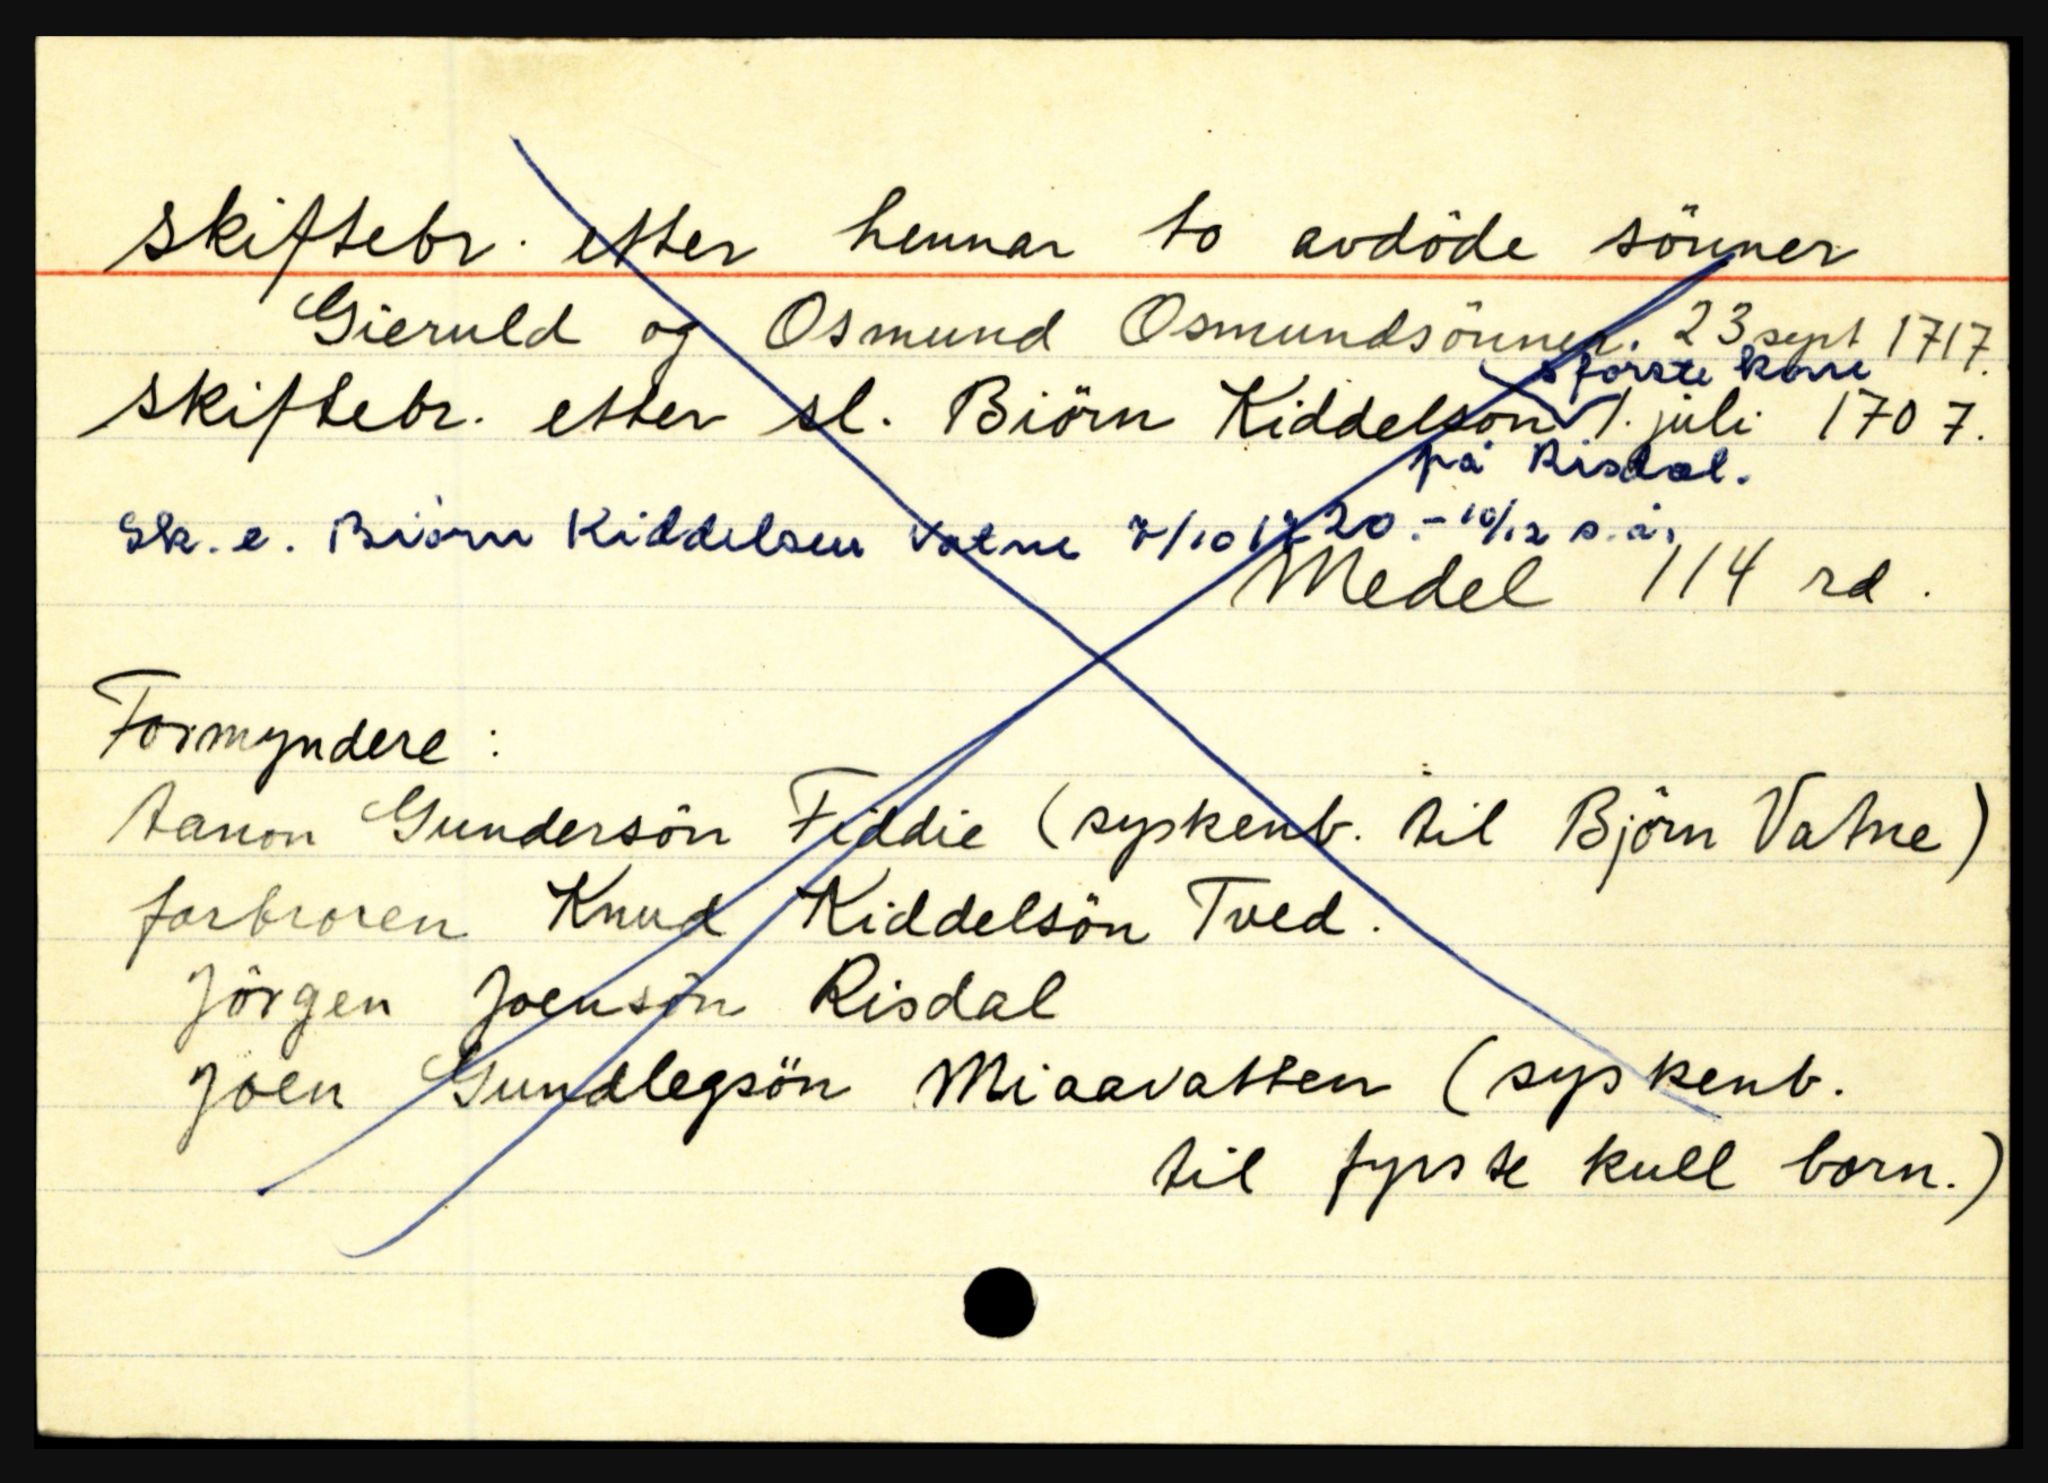 skiftebr. etter hennar to avdöde sönner
Gieruld og Osmund Osmundsönner. 23 sept 1717.
s förste kone
skiftebr. etter sl. Biörn Kiddelsön 1. juli 1707.
på Risdal.
Sk. e. Biörn Kiddelsen Vatne 7/10 1720. - 10/12 s. å.
Medel 114 rd.
Formyndere :
Aanon Gundersön Fiddie (syskenb. til Björn Vatne)
farbroren Knud Kiddelsön Tved.
Jörgen Joensön Risdal
Joen Gundlegsön Miaavatten (syskenb.
til fyrste kull born.)